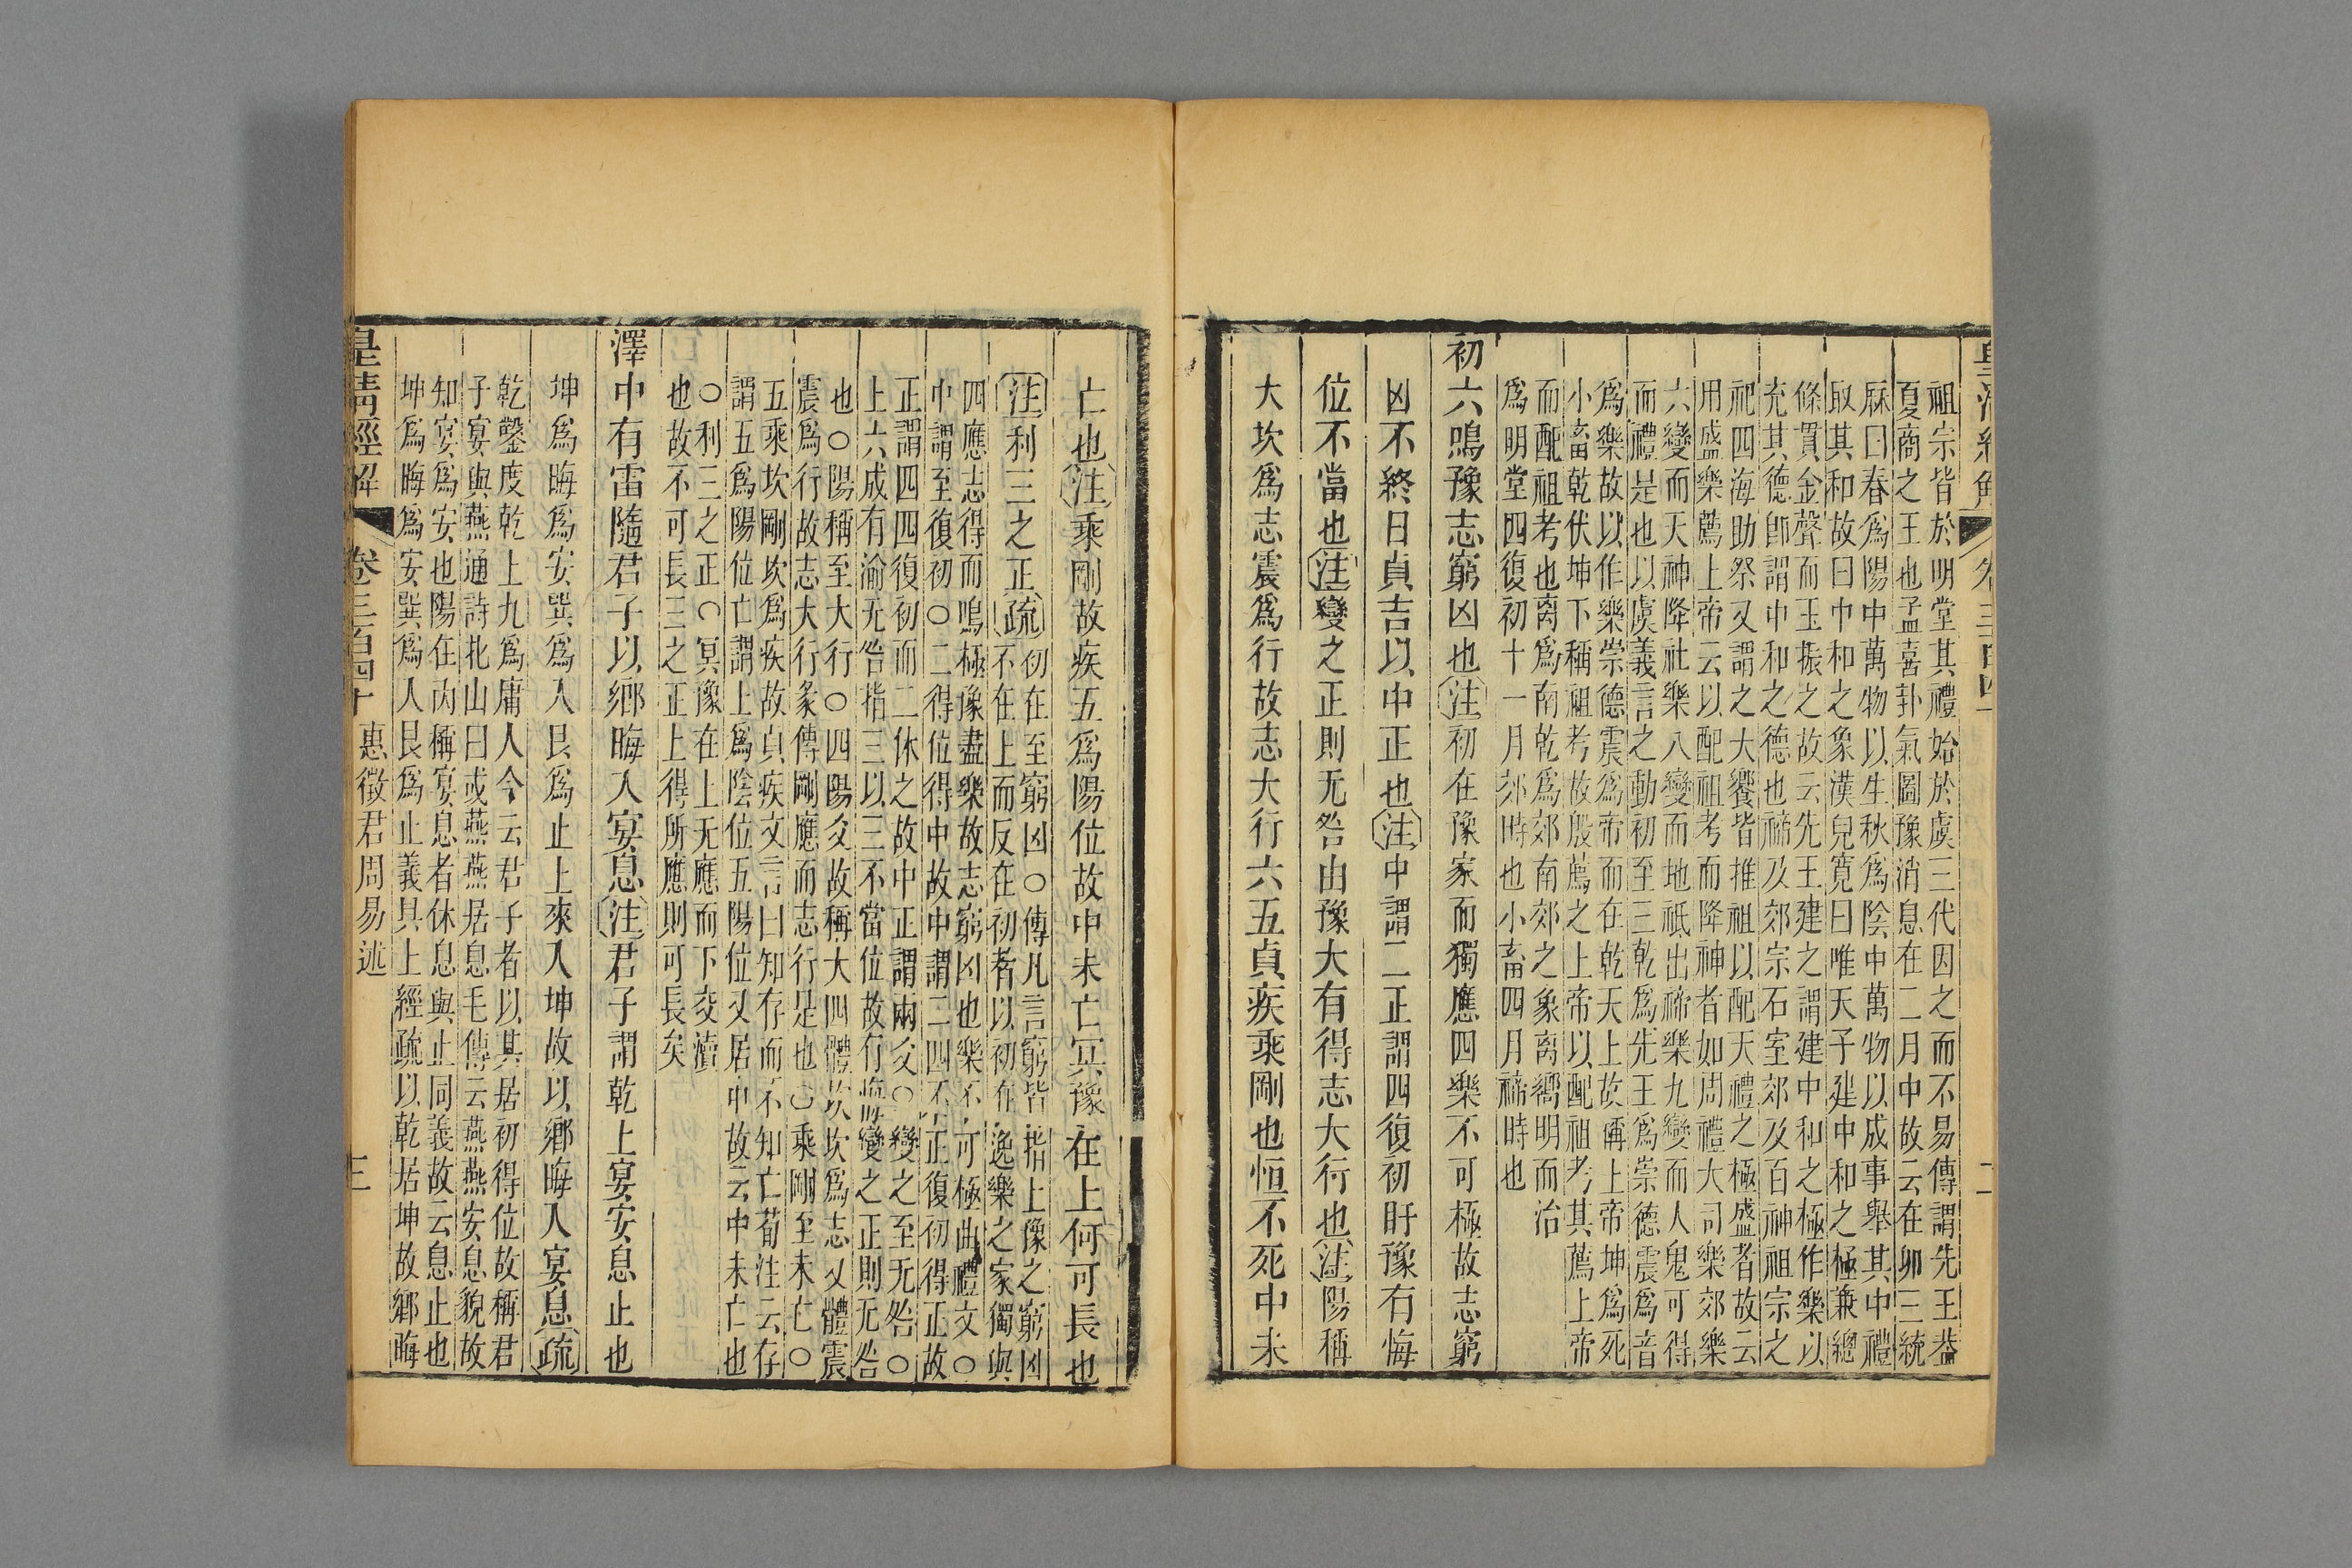 祖宗皆於明堂其禮始於虞三代因之而不易傳謂先王葢
夏商之王也孟喜卦氣圖豫消息在二月中故云在卯三統
厤曰春爲陽中萬物以生秋爲陰中萬物以成事舉其中禮
取其和故曰中和之象漢兒寬曰唯天子建中和之極兼總
條貫金聲而玉振之故云先王建之謂建中和之極作樂以
充其德卽謂中和之德也禘及郊宗石室郊及百神祖宗之
祀四海助祭又謂之大饗皆推祖以配天禮之極盛者故云
用盛樂薦上帝云以配祖考而降神者如周禮大司樂郊樂
六變而天神降社樂八變而地祇出禘樂九變而人鬼可得
而禮是也以虞義言之動初至三乾爲先王爲崇德震爲音
爲樂故以作樂崇德震爲帝而在乾天上故稱上帝坤爲死
小畜乾伏坤下稱祖考故殷薦之上帝以配祖考其薦上帝
而配祖考也离爲南乾爲郊南郊之象离嚮明而治
爲明堂四復初十一月郊時也小畜四月禘時也
初六鳴豫志窮凶也注初在豫家而獨應四樂不可極故志窮
凶不終日貞吉以中正也注中謂二正謂四復初盱豫有悔
位不當也注變之正則无咎由豫大有得志大行也注陽稱
大坎爲志震爲行故志大行六五貞疾乘剛也恒不死中未
亡也注乘剛故疾五爲陽位故中未亡冥豫在上何可長也
注利三之正疏初在至窮凶○傳凡言窮皆指上豫之窮凶
不在上而反在初者以初在逸樂之家獨與
四應志得而鳴極豫盡樂故志窮凶也樂不可極曲禮文○
中謂至復初○二得位得中故中謂二四不正復初得正故
正謂四四復初而二休之故中正謂兩爻○變之至无咎○
上六成有渝无咎指三以三不當位故有悔變之正則无咎
也○陽稱至大行○四陽爻故稱大四體坎坎爲志又體震
震爲行故志大行彖傳剛應而志行是也○乘剛至未亡○
五乘坎剛坎爲疾故貞疾文言曰知存而不知亡荀注云存
謂五爲陽位亡謂上爲陰位五陽位又居中故云中未亡也
○利三之正○冥豫在上无應而下交瀆
也故不可長三之正上得所應則可長矣
澤中有雷隨君子以鄉晦入宴息注君子謂乾上宴安息止也
坤爲晦爲安巽爲入艮爲止上來入坤故以鄉晦入宴息疏
乾鑿度乾上九爲庸人今云君子者以其居初得位故稱君
子宴與燕通詩北山曰或燕燕居息毛傳云燕燕安息貌故
知宴爲安也陽在內稱宴息者休息與止同義故云息止也
坤爲晦爲安巽爲入艮爲止義具上經疏以乾居坤故鄉晦
皇清經解 卷三百四十 惠徵君周易述 三